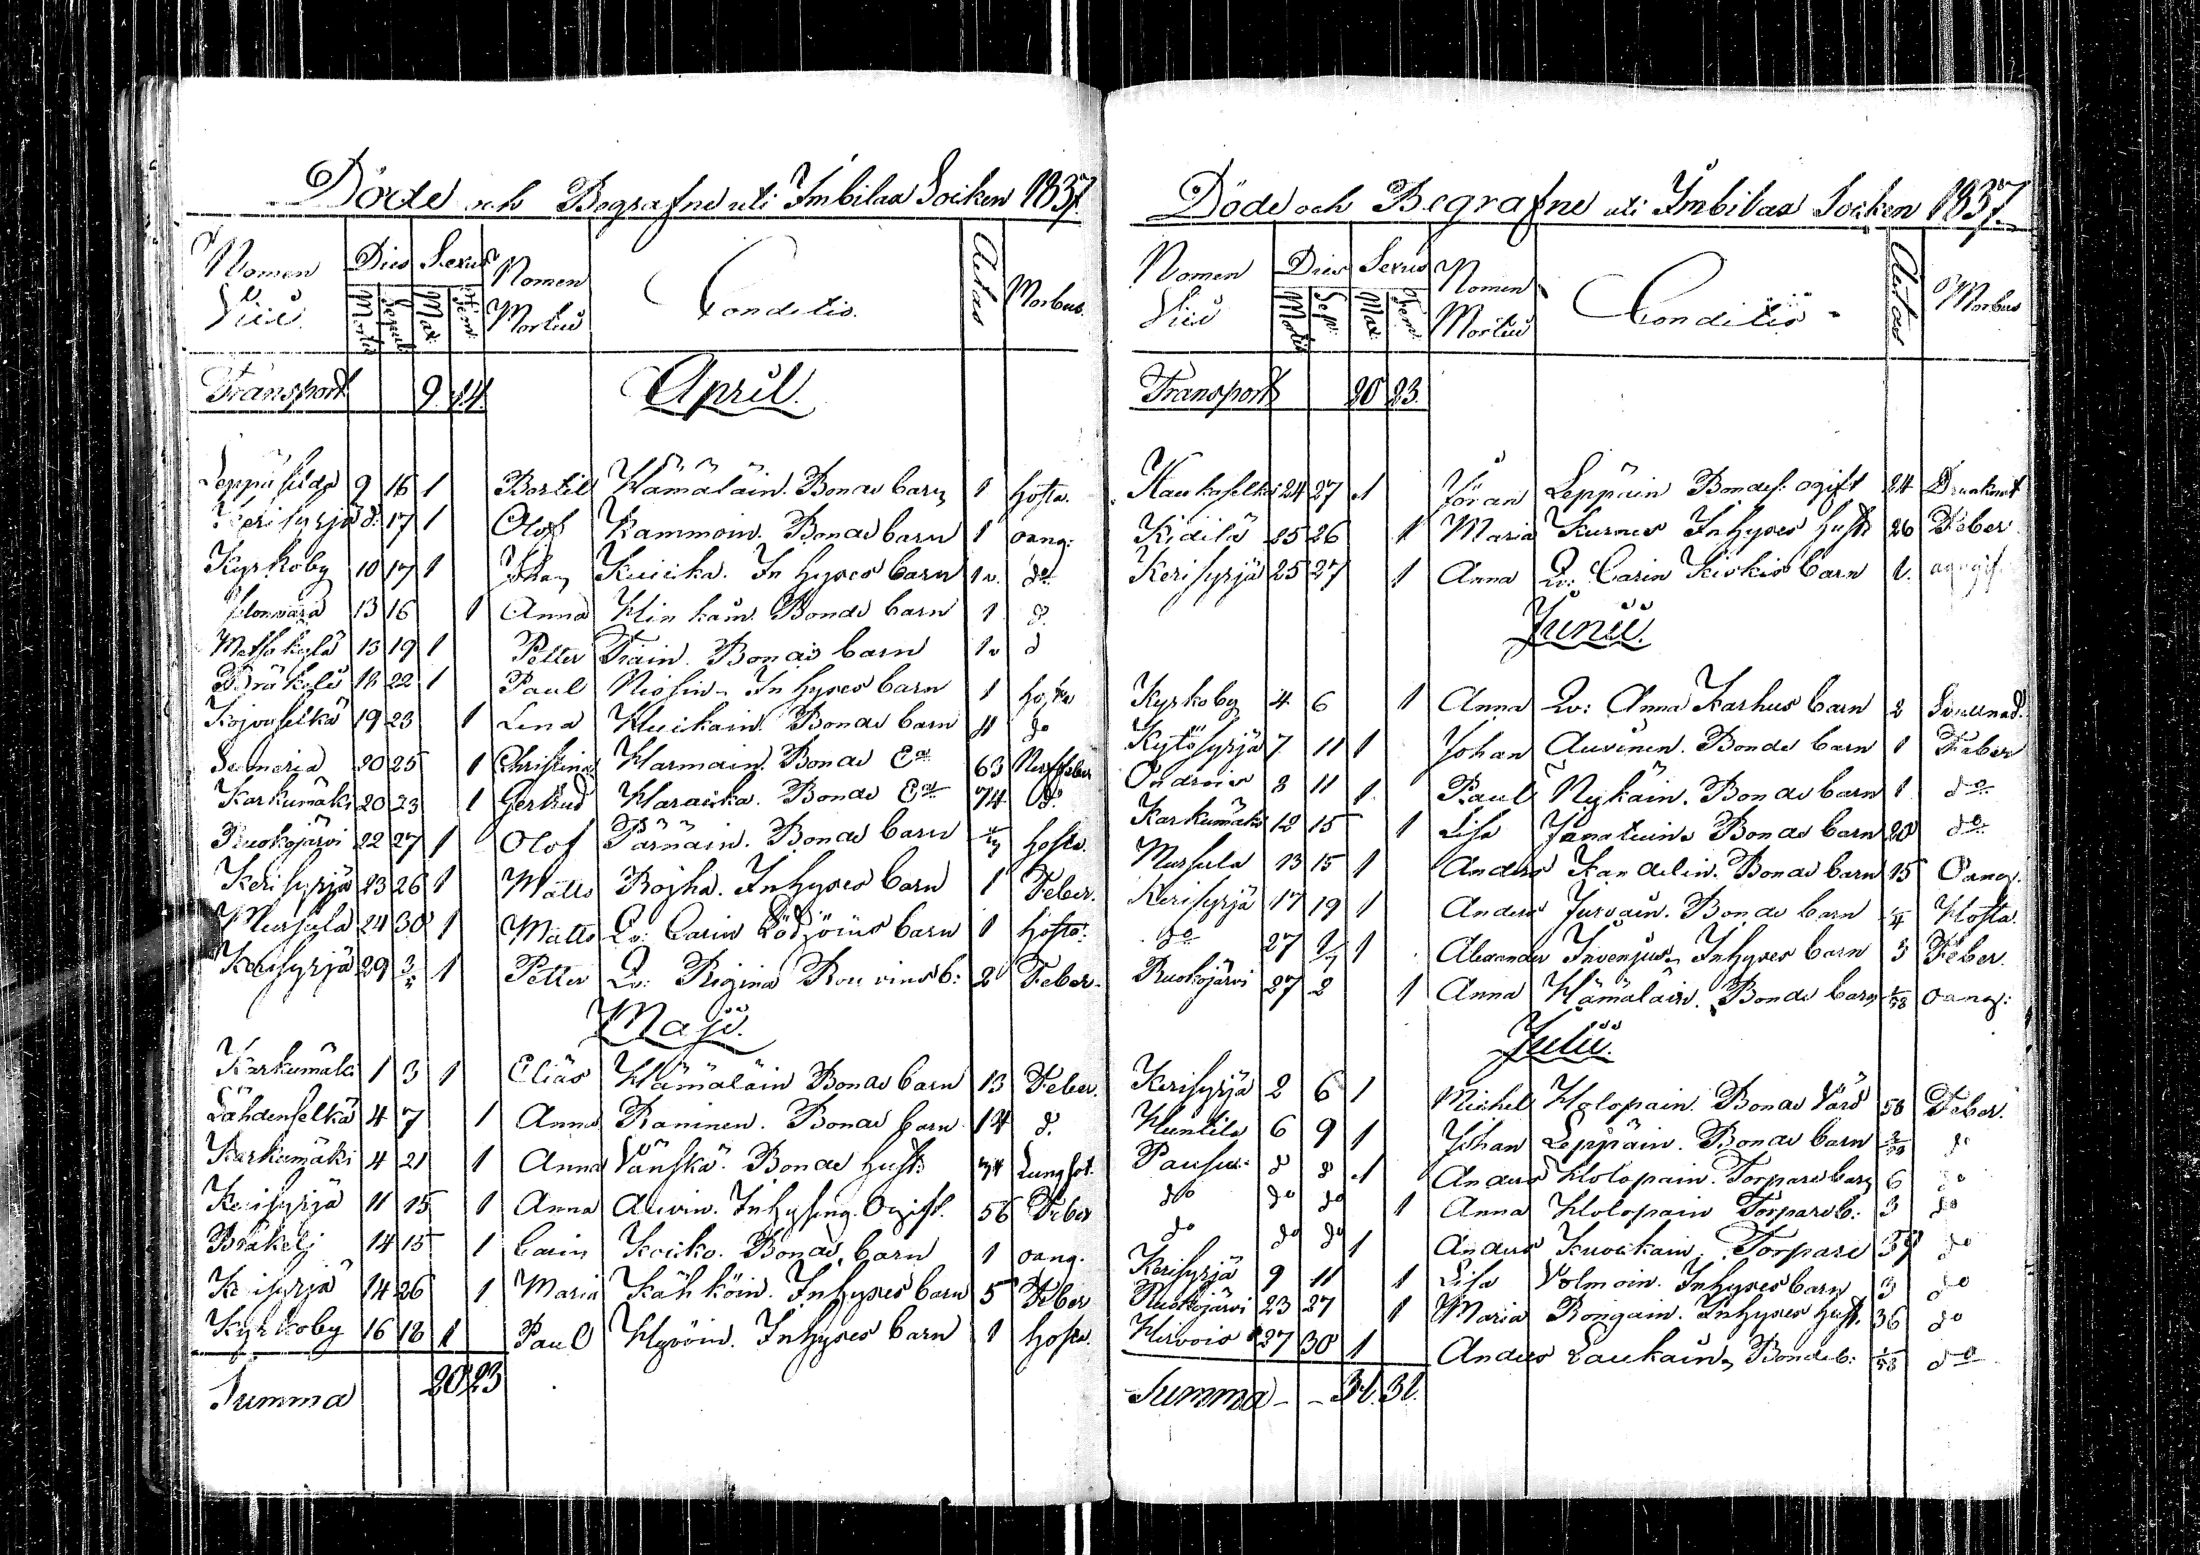 Döde och Begrafne uti Imbilax Socken 1837.
Nomen Vici Dies Sexus Nomen Mortui Conditio. Aetas Morbus.
Mortis Sepult Mas: Fem:
Transport 9. 14. April.
9 16 1 Bertil Hämäläin. Bonde barn 1 hosta.
Kerisyrjä d: 17 1 Olof Kammoin. Bonde barn 1 oang:
Kyrkoby 10 17 1 Johan Kuicka. Inhyses barn 1 v. do
13 16 1 Anna Hinkain. Bonde barn 1 d.
Metsokylä 13 19 1 Petter Train. Bonde barn 1 v d
18 22 1 Paul Inhyses barn 1
Kojonselkä 19 23 1 Lena Bonde barn 11 do
20 25 1 Christina Harmain. Bonde Ea 63 Nerffeber
Karkumäki 20 23 1 Gertrud Bonde Ea 74 d:
Ruokojärvi 22 27 1 Olof Pärnäin. Bonde barn hosta.
Kerisyrjä 23 26 1 Matts Rojha. Inhyses barn 1 Feber.
Mursula 24 30 1 Matts Qv: Carin barn 1 hosta:
Kerisyrjä 29 3/5 1 Petter Qv: Rigina b: 2 Feber.
Maji.
Karkumäki 1 3 1 Elias Hämäläin Bonde barn 13 Feber.
Lähdenselkä 4 7 1 Anna Raninen. Bonde barn 14 d.
Karkumäki 4 21 1 Anna Vänskä. Bonde hust: 74 Lungsot.
Kerisyrjä 11 15 1 Anna Auvin. Ogift. 56 Feber
14 15 1 Carin Koiko. Bonde barn 1 oang.
Kerisyrjä 14 26 1 Maria Kähköin. Inhyses barn 5 Feber
Kyrkoby 16 18 1 Paul Hyvöin. Inhyses barn 1 hosta.
Summa 20 23
Döde och Begrafne uti Imbilax Socken 1837.
Nomen Vici Dies Sexus Nomen Mortui Conditio Aetas Morbus
Mortis Sep: Mas: Fem:
Transport 20 23.
Haukaselkä 24 27 1 Jöran Leppäin Bondes: ogift 24 Drunknat
Kidilä 25 26 1 Maria Kurnes Inhyses hust: 26 Feber
Kerisyrjä 25 27 1 Anna Qv: Carin Kiskis barn 1.
Junii.
Kyrkoby 4 6 1 Anna Qv: Anna Karhus barn 2 Svullnad.
Kytösyrjä 7 11 1 Johan Auvinen. Bonde barn 1 Feber
8 11 1 Paul Nykäin. Bonde barn 1 do
Karkumäki 12 15 1 Lisa Janatuin. Bonde barn 20 do
Mursula 13 15 1 Anders Kandelin. Bonde barn 15 Oang.
Kerisyrjä 17 19 1 Anders Jurvain. Bonde barn Hosta.
do 27 2/7 1 Alexander Invenius. Inhyses barn 3 Feber.
Ruokojärvi 27 2 1 Anna Hämäläin. Bonde barn oang:
Julii.
Kerisyrjä 2 6 1 Michel Holopain. Bonde Värd 58 Feber.
Huntila 6 9 1 Johan Leppäin. Bonde barn do
8 8 1 Anders Holopain. Torpare barn 6 do
do do do 1 Anna Holopain Torpare b: 3 do
do do do 1 Anders Kuockain. Torpare 39 do
Kerisyrjä 9 11 1 Lisa Volmoin. Inhyses barn 3 do
Ruokojärvi 23 27 1 Maria Rongain. Inhyses hust. 36 do
Hirvois 27 30 1 Anders Laukain, Bonde b: do
Summa - - 31. 31.